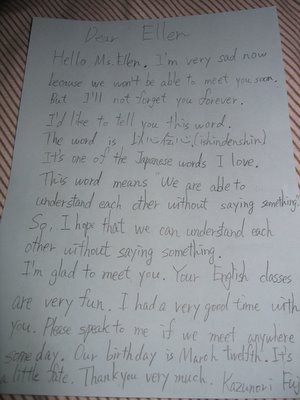 Dear Ellen
Hello Ms. Ellen. I'm very sad now
because we won't be able to meet you soon.
But I'll not forget you forever.
I'd like to tell you this word.
The word is 以心伝心.(ishindenshin)
It's one of the Japanese words I love.
This word means "We are able to
understand each other without saying something."
So, I hope that we can understand each
other without saying something.
I'm glad to meet you. Your English classes
are very fun. I had a very good time with
you. Please speak to me if we meet anywhere
someday. Our birthday is March Twelfth. It's
a little fate. Thank you very much. Kazunori